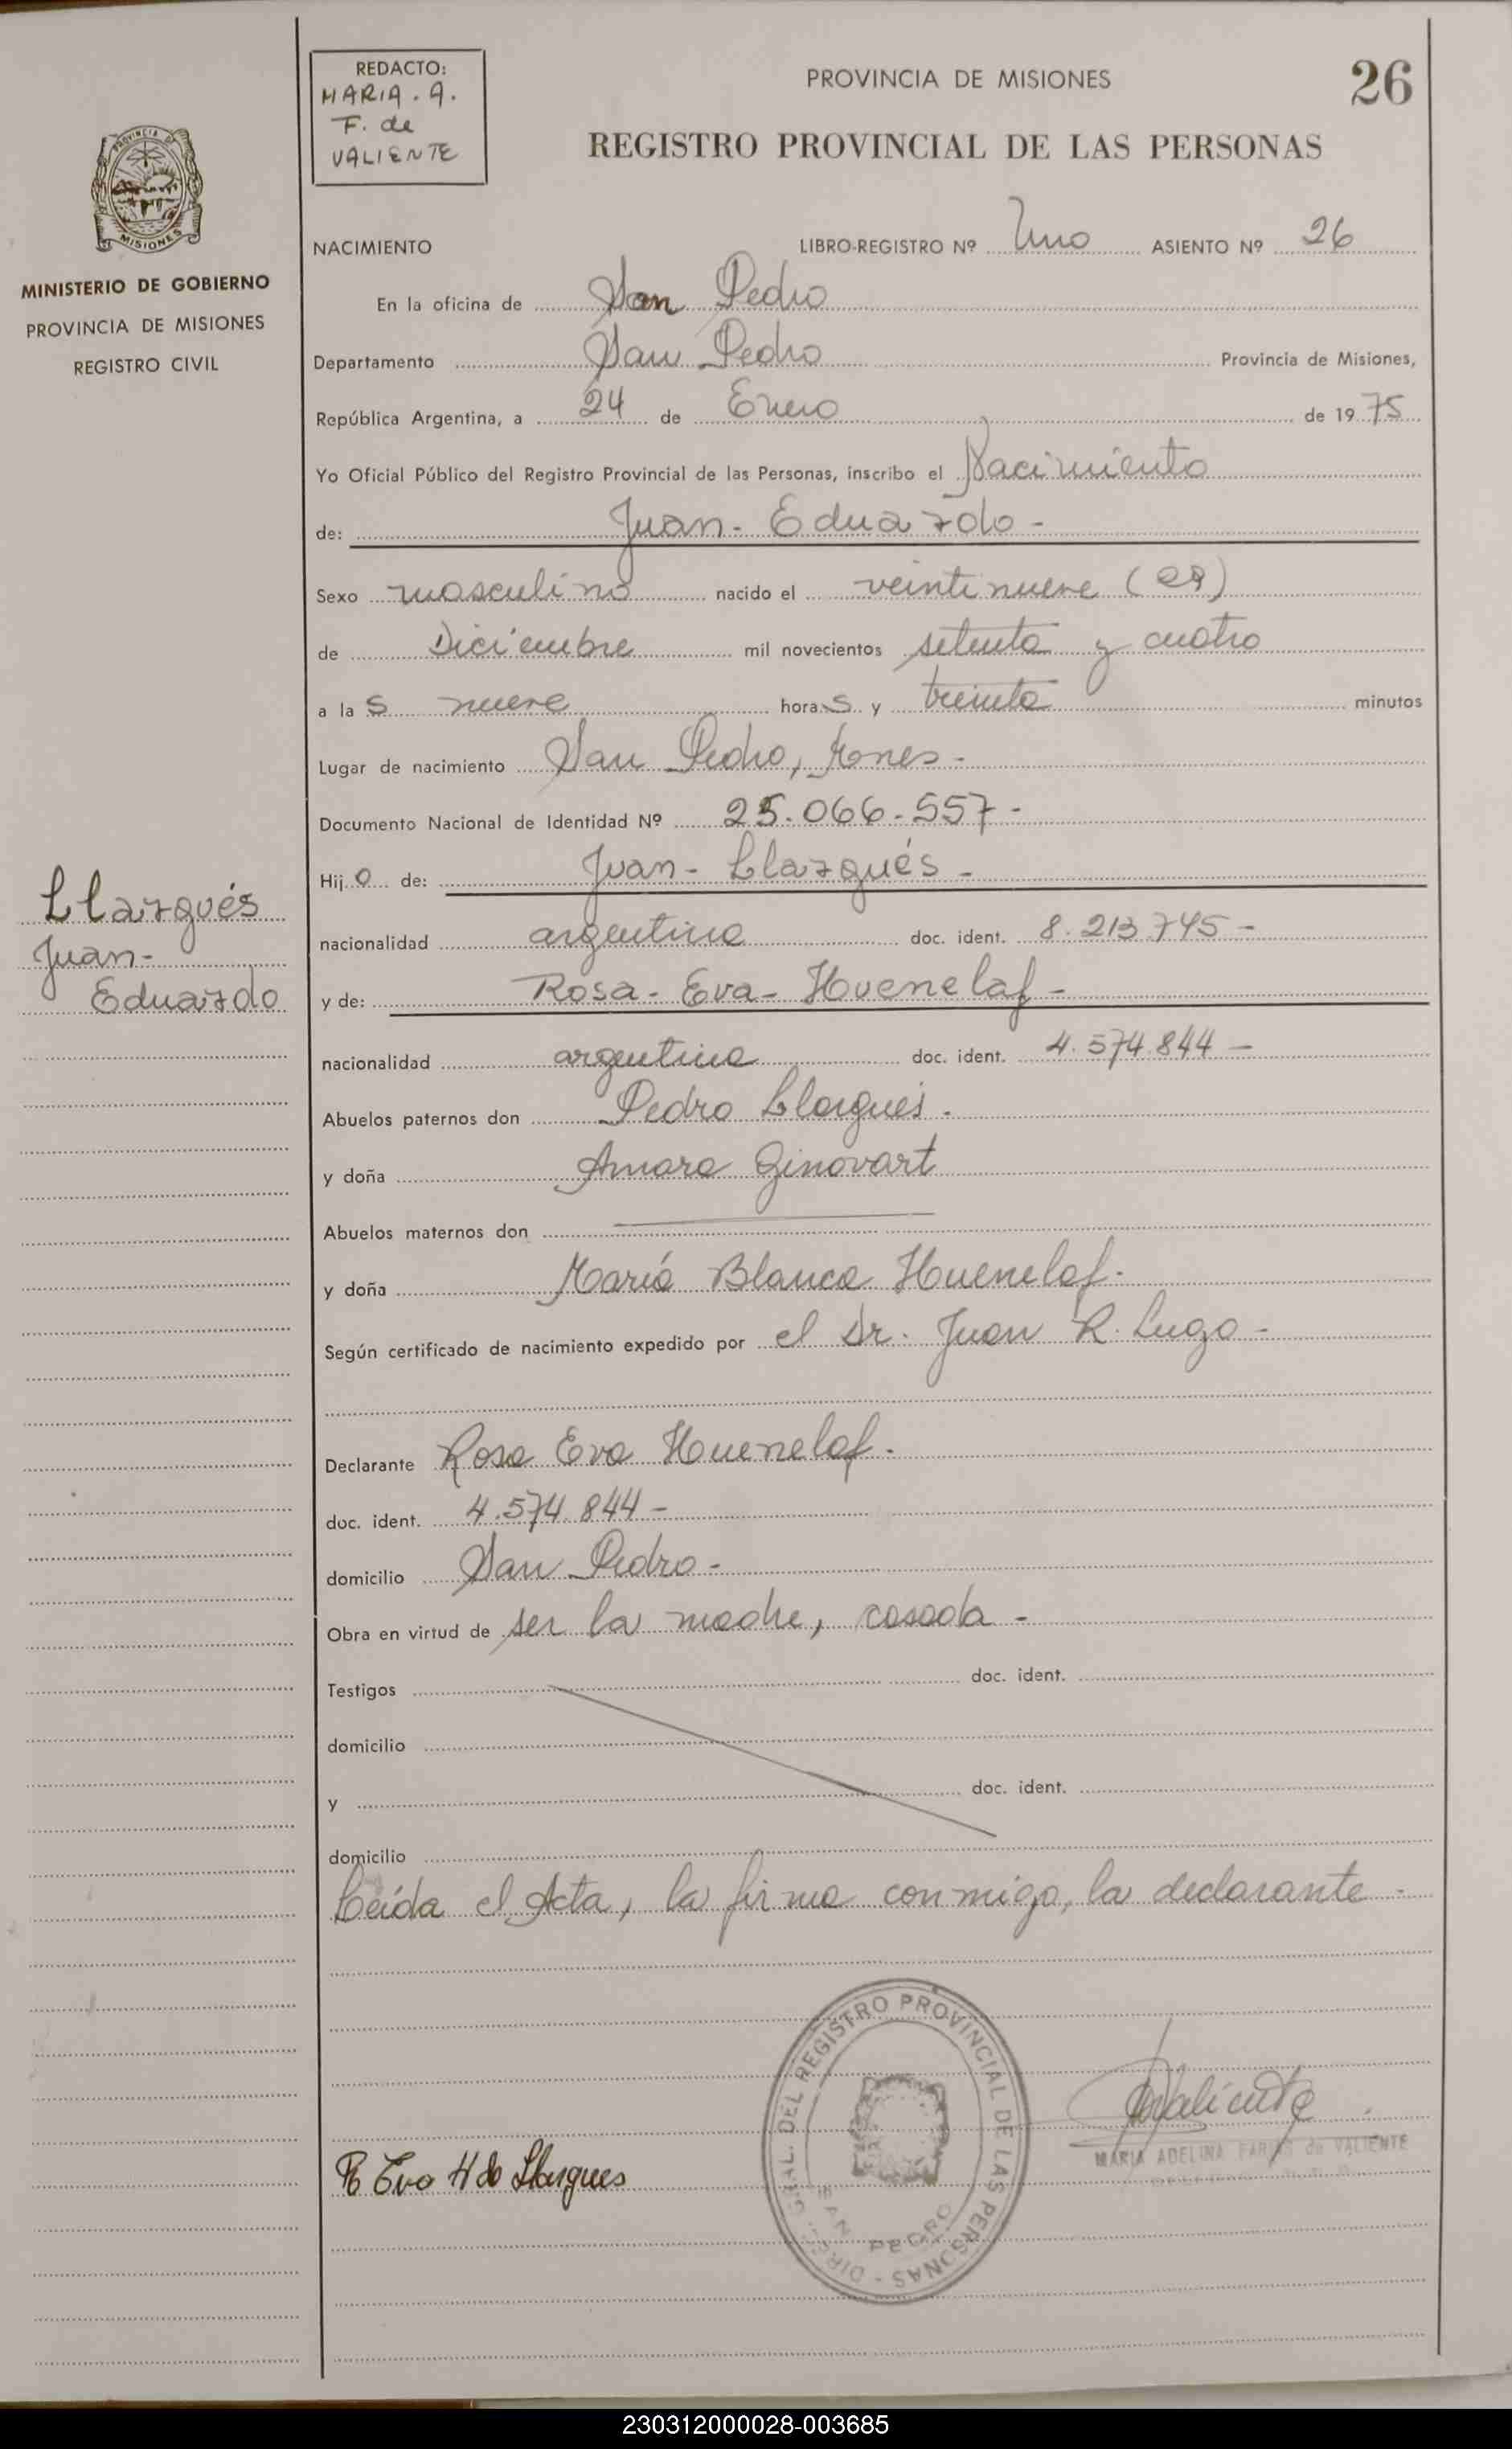 REDACTO:
MARIA. A.
F. de
VALIENTE
PROVINCIA DE MISIONES
26
REGISTRO PROVINCIAL DE LAS PERSONAS
PROVINCIA DE
MISIONES
MINISTERIO DE GOBIERNO
PROVINCIA DE MISIONES
REGISTRO CIVIL
NACIMIENTO LIBRO-REGISTRO Nº Uno ASIENTO Nº 26
En la oficina de San Pedro
Departamento San Pedro Provincia de Misiones,
República Argentina, a 24 de Enero de 19 75
Yo Oficial Público del Registro Provincial de las Personas, inscribo el Nacimiento
de: Juan - Eduardo -
Sexo masculino nacido el veintinueve (29)
de Diciembre mil novecientos setenta y cuatro
a la s nueve hora s y treinta minutos
Lugar de nacimiento San Pedro, Mones -
Documento Nacional de Identidad Nº 25.066.557 -
Hij o de: Juan - Llargués -
nacionalidad argentina doc. ident. 8.213.745 -
y de: Rosa - Eva - Huenelaf -
nacionalidad argentina doc. ident. 4.574.844 -
Abuelos paternos don Pedro Llargués -
y doña Amara Ginovart
Abuelos maternos don
y doña María Blanca Huenelaf.
Según certificado de nacimiento expedido por el Dr. Juan R. Lugo -
Declarante Rosa Eva Huenelaf -
doc. ident. 4.574.844 -
domicilio San Pedro -
Obra en virtud de ser la madre, casada -
Testigos doc. ident.
domicilio
y doc. ident.
domicilio
Leída el Acta, la firma conmigo, la declarante -
Llargués
Juan -
Eduardo
R Eva H de Llargues
DIREC. GRAL. DEL REGISTRO PROVINCIAL DE LAS PERSONAS -
SAN PEDRO
Valiente
MARIA ADELINA FARIAS de VALIENTE
230312000028-003685